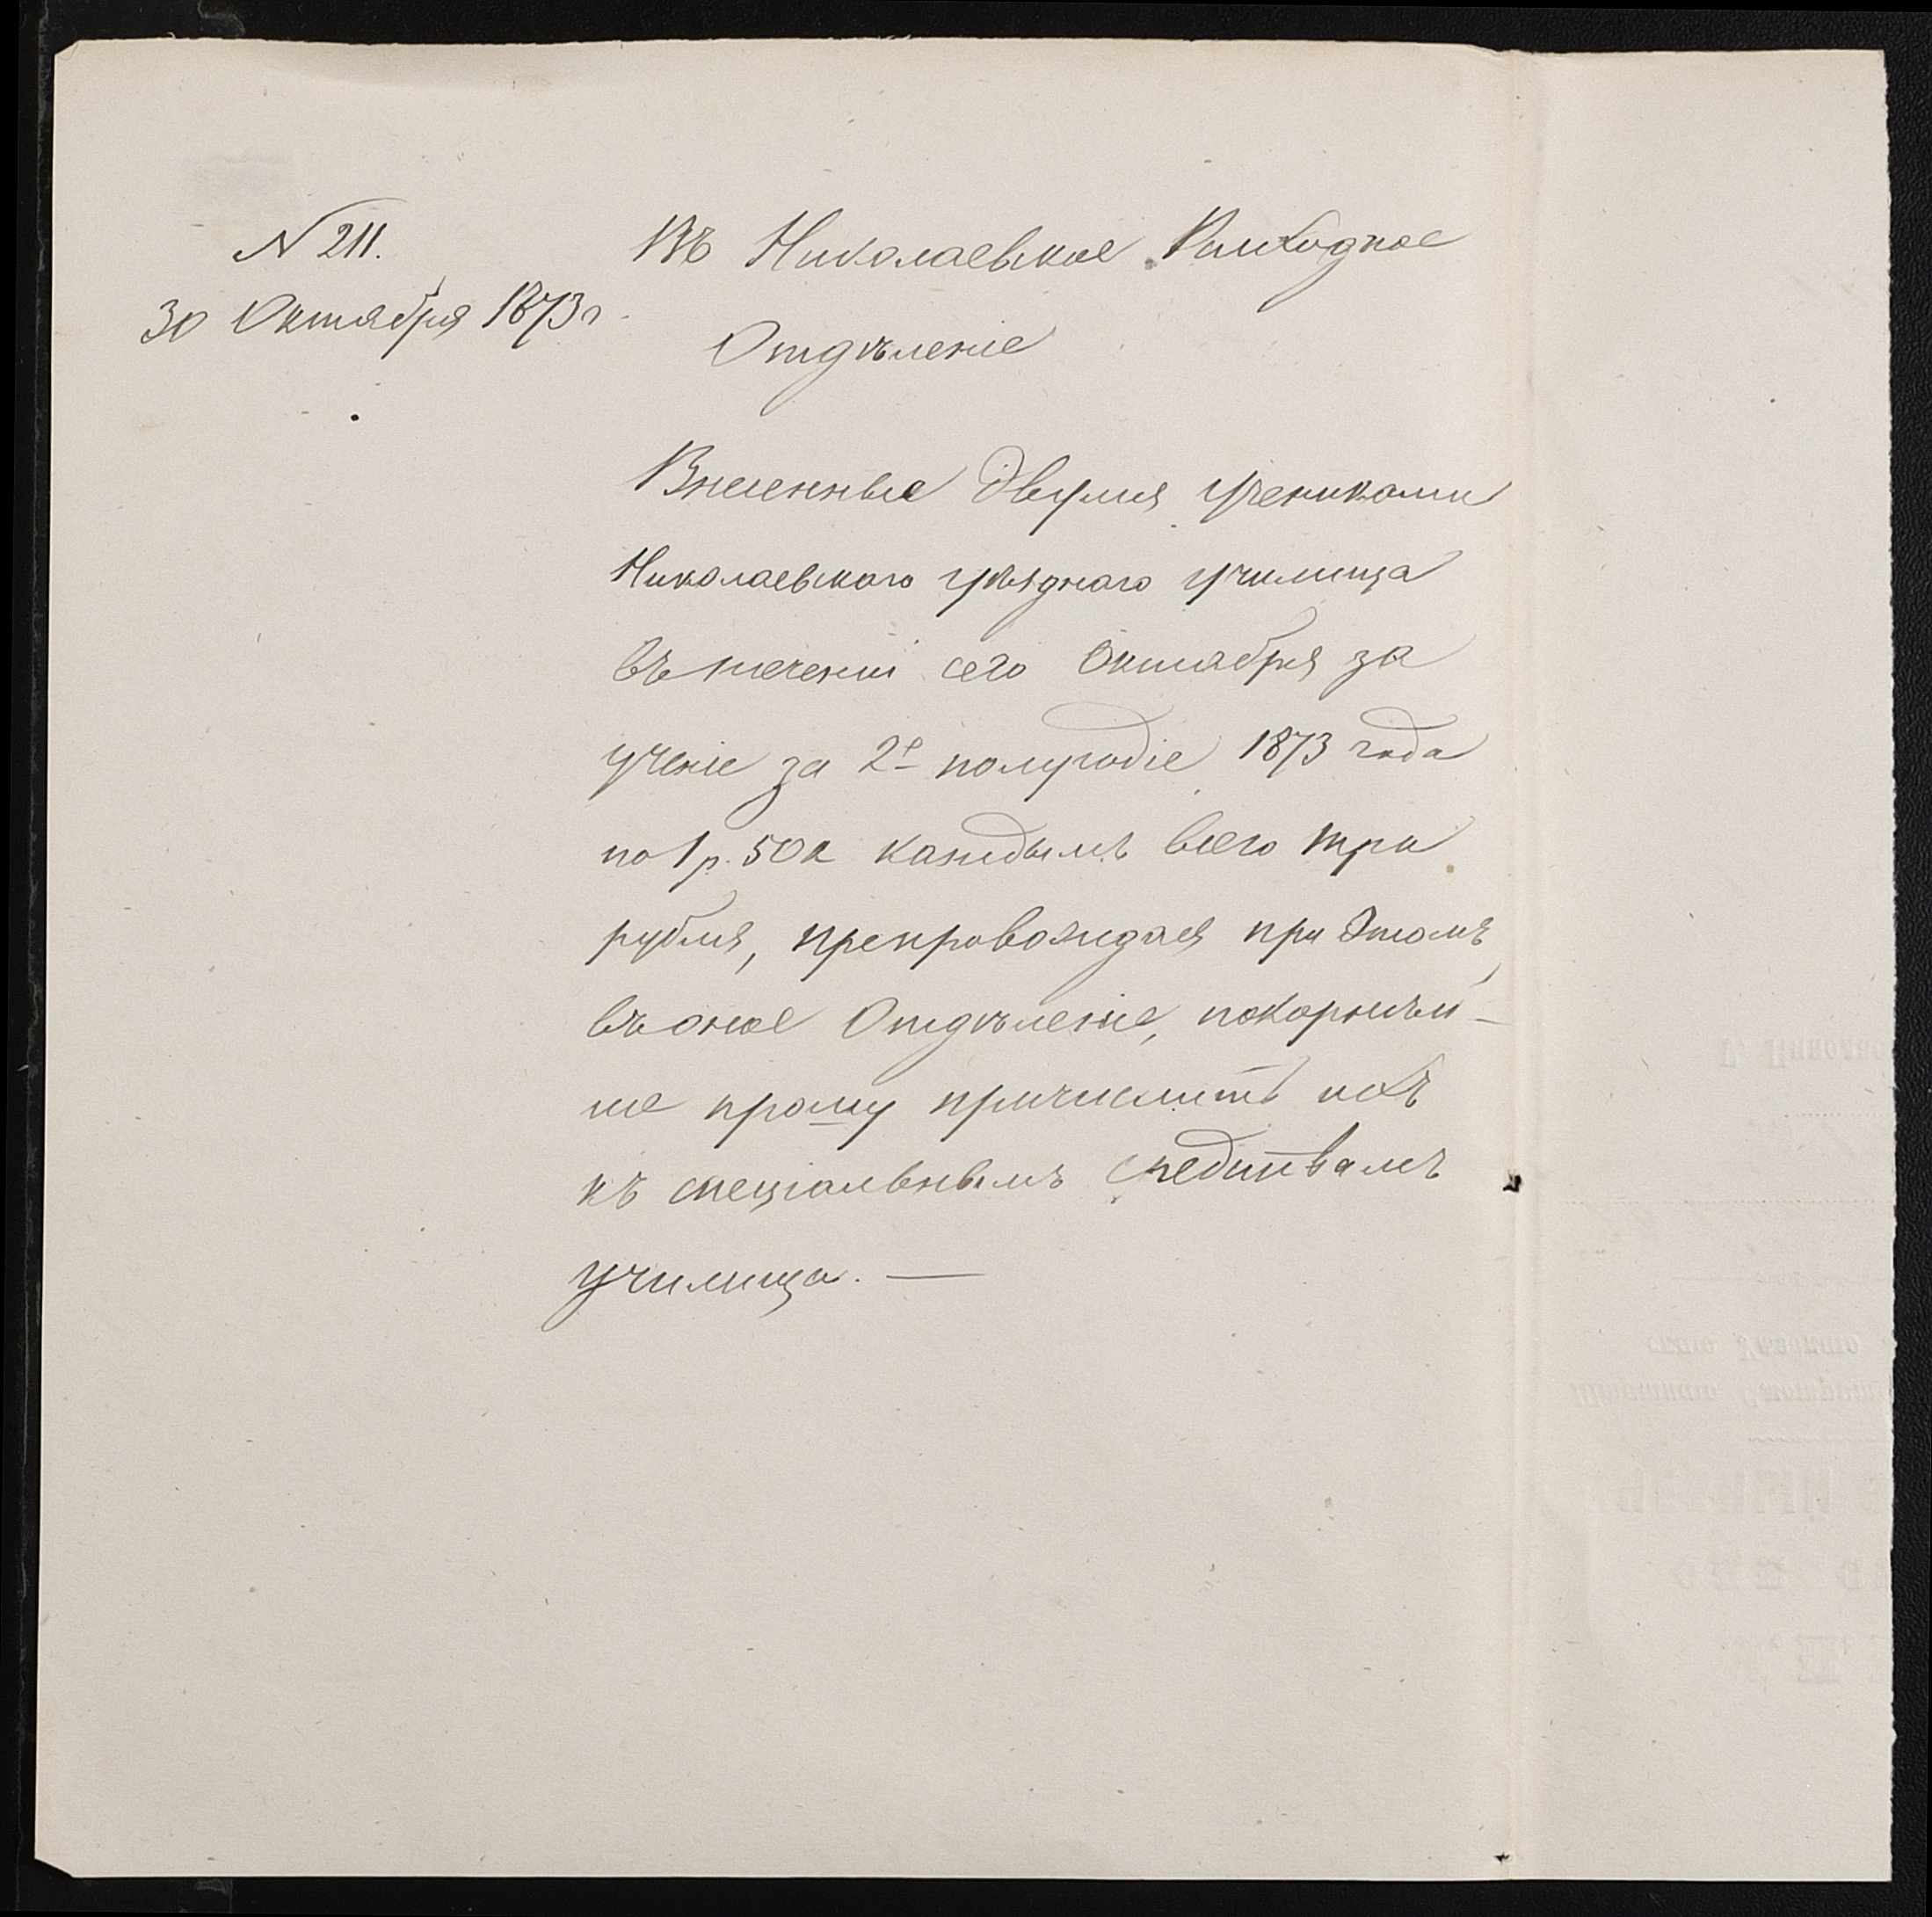 N 211.
30 Октября 1873 г.
Въ Николаевское Расходное
Отдѣленіе
Внесенные двумя учениками
Николаевскаго уѣзднаго училища
въ теченіи сего Октября за
ученіе за 2е полугодіе 1873 года
по 1 р. 50 к каждымъ всего три
рубля, препровождая при этомъ
въ оное Отдѣленіе, покорнѣй-
ше прошу причислить ихъ
къ спеціальнымъ средствамъ
училища. —